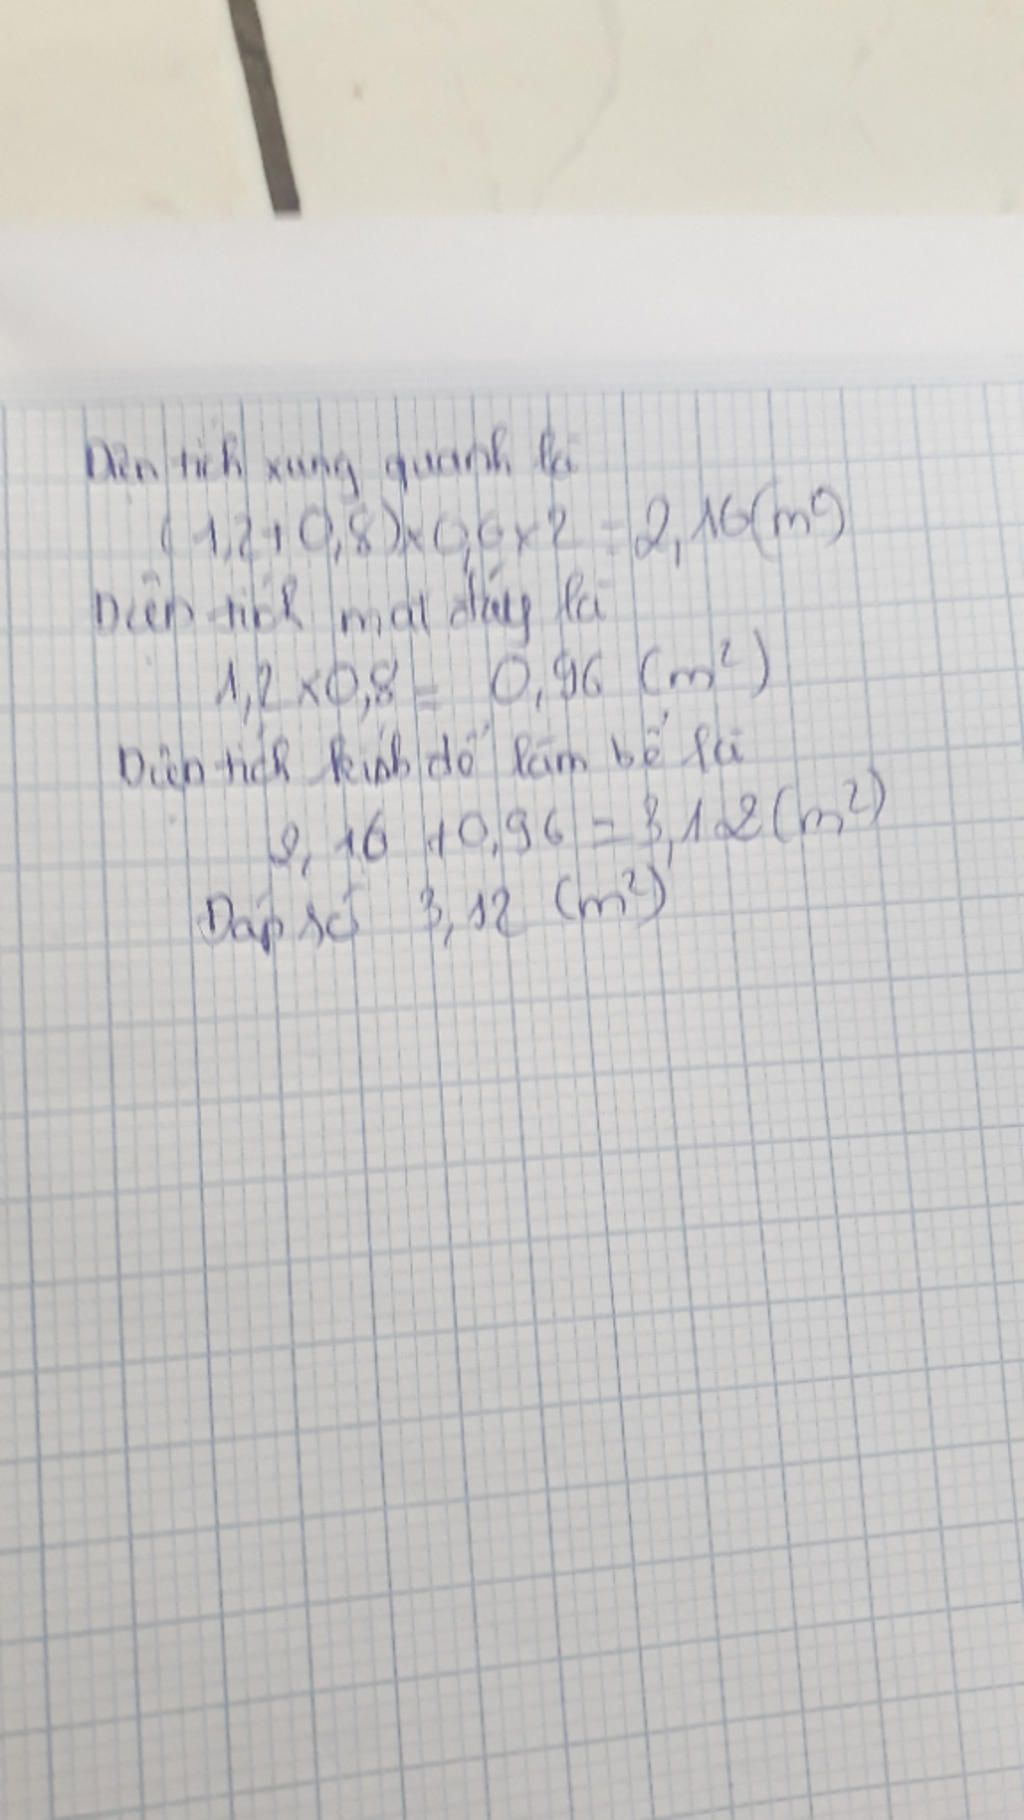 Diện tích xung quanh là
(1,2+0,8)x0,6x2 = 2,16(m²)
Diện tích mặt đáy là
1,2x0,8= 0,96 (m²)
Diện tích kính để làm bể là
2,16 +0,96 =3,12(m²)
Đáp số 3,12 (m²)